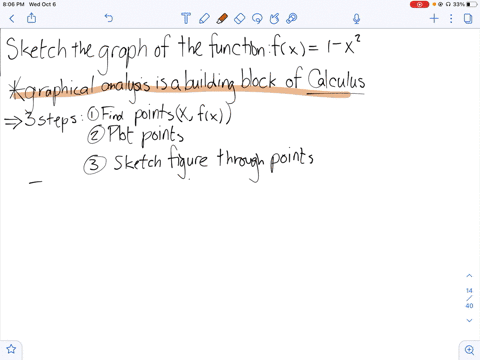 8:06 PM Wed Oct 6
33%
Sketch the graph of the function: f(x) = 1-x²
*graphical analysis is a building block of Calculus
⇒ 3 steps: ① Find points (x, f(x))
② Plot points
③ Sketch figure through points
14
/
40